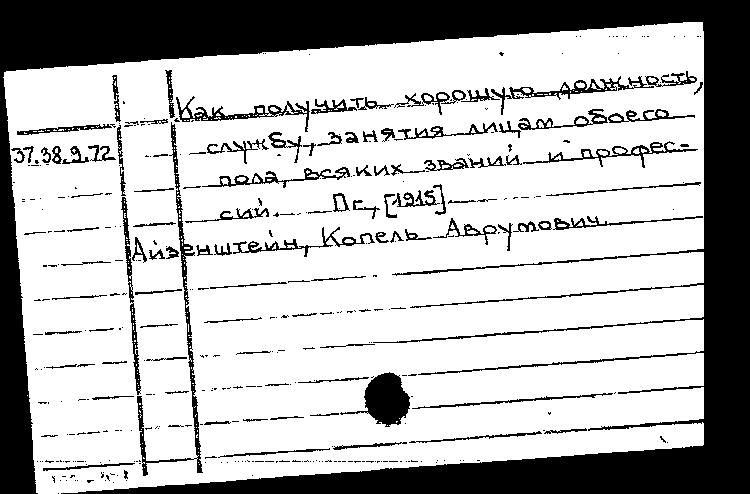 Как получить хорошую должность,
37.38.9.72 службу, занятия лицам обоего
пола, всяких званий и профес-
сий. Пг., [1915]
Айзенштейн, Копель Аврумович.